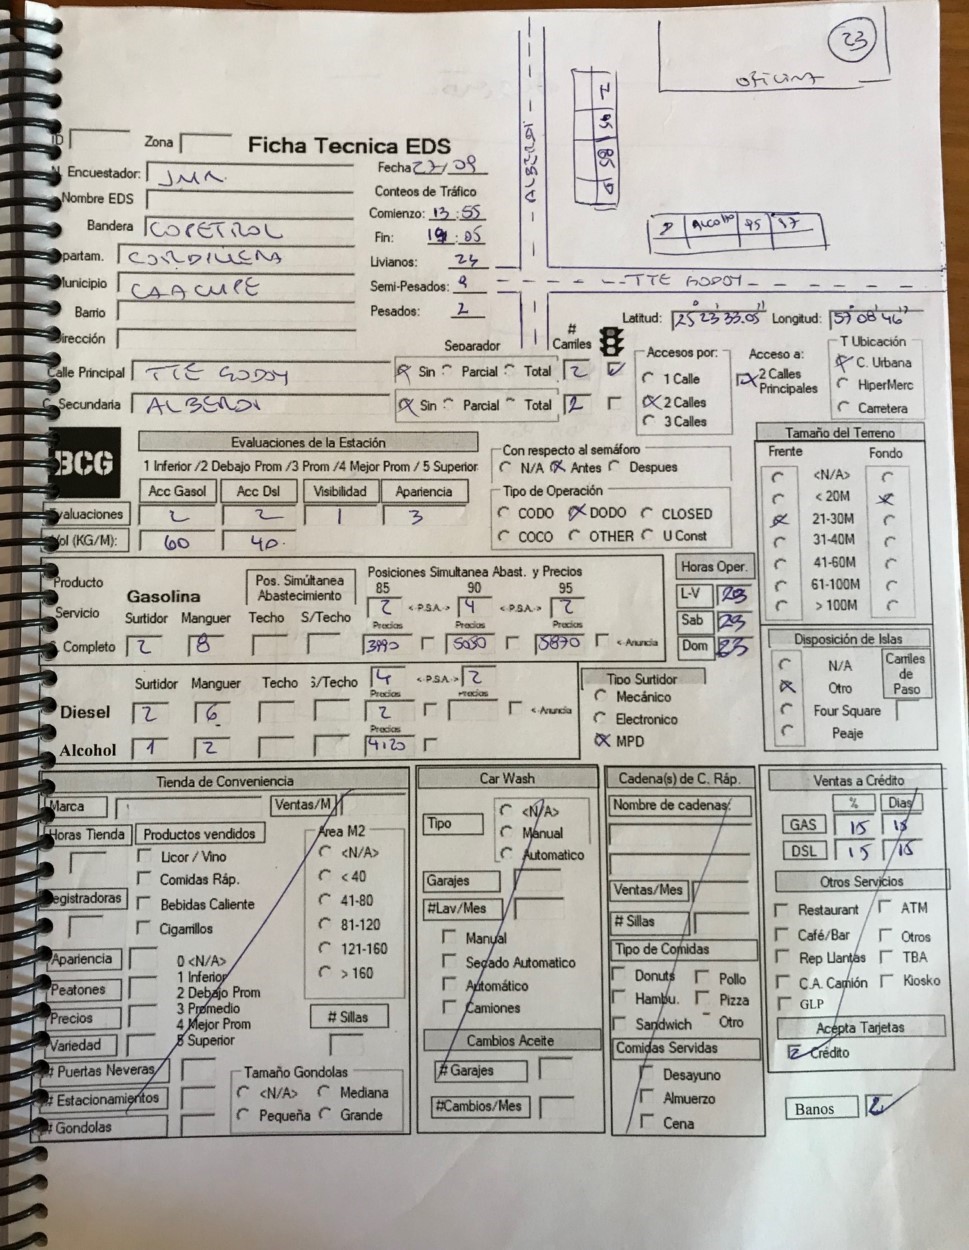 23
OFICINA
ALBERDI
95 85
D ALCOHOL 95 87
TTE GODOY
ID Zona
Ficha Tecnica EDS
Fecha 27/09
Encuestador: JMR
Conteos de Tráfico
Nombre EDS
Comienzo: 13:55
Bandera COPETROL
Fin: :05
partam. CORDILLERA
Livianos: 24
unicipio CAACUPE
Semi-Pesados: 9
Barrio
Pesados: 2
irección
Latitud: 25 23 33.05 Longitud: 57 08 46
Separador # Carriles
Calle Principal TTE GODOY Sin Parcial Total 2
C. Secundaria ALBERDI Sin Parcial Total 2
Accesos por:
1 Calle
2 Calles
3 Calles
Acceso a:
2 Calles Principales
T Ubicación
C. Urbana
HiperMerc
Carretera
BCG
Evaluaciones de la Estación
1 Inferior /2 Debajo Prom /3 Prom /4 Mejor Prom / 5 Superior
Acc Gasol Acc Dsl Visibilidad Apariencia
Evaluaciones 2 2 1 3
Vol (KG/M): 60 40.
Con respecto al semáforo
N/A Antes Despues
Tipo de Operación
CODO DODO CLOSED
COCO OTHER U Const
Tamaño del Terreno
Frente Fondo
<N/A>
< 20M
21-30M
31-40M
41-60M
61-100M
> 100M
Producto
Servicio
Completo
Gasolina
Pos. Simúltanea Abastecimiento
Posiciones Simultanea Abast. y Precios
85 90 95
2 <-P.S.A.-> 4 <-P.S.A.-> 2
Surtidor Manguer Techo S/Techo
Precios Precios Precios
2 8 3990 5050 5870 <-Anuncia
Horas Oper.
L-V
Sab
Dom
Disposición de Islas
N/A
Otro
Four Square
Peaje
Carriles de Paso
Surtidor Manguer Techo S/Techo 4 <-P.S.A.-> 2
Precios Precios
Diesel 2 6 2 <-Anuncia
Precios
Alcohol 1 2 4120
Tipo Surtidor
Mecánico
Electronico
MPD
Tienda de Conveniencia
Marca Ventas/M
Horas Tienda Productos vendidos
Licor / Vino
Comidas Ráp.
Bebidas Caliente
Cigarrillos
egistradoras
Area M2
<N/A>
< 40
41-80
81-120
121-160
> 160
Apariencia
Peatones
Precios
Variedad
0 <N/A>
1 Inferior
2 Debajo Prom
3 Promedio
4 Mejor Prom
5 Superior
# Sillas
# Puertas Neveras
# Estacionamientos
# Gondolas
Tamaño Gondolas
<N/A> Mediana
Pequeña Grande
Car Wash
Tipo
<N/A>
Manual
Automatico
Garajes
#Lav/Mes
Manual
Secado Automatico
Automático
Camiones
Cambios Aceite
# Garajes
#Cambios/Mes
Cadena(s) de C. Ráp.
Nombre de cadenas:
Ventas/Mes
# Sillas
Tipo de Comidas
Donuts Pollo
Hambu. Pizza
Sandwich Otro
Comidas Servidas
Desayuno
Almuerzo
Cena
Ventas a Crédito
% Dias
GAS 15 15
DSL 15 15
Otros Servicios
Restaurant ATM
Café/Bar Otros
Rep Llantas TBA
C.A. Camión Kiosko
GLP
Acepta Tarjetas
Crédito
Banos 2